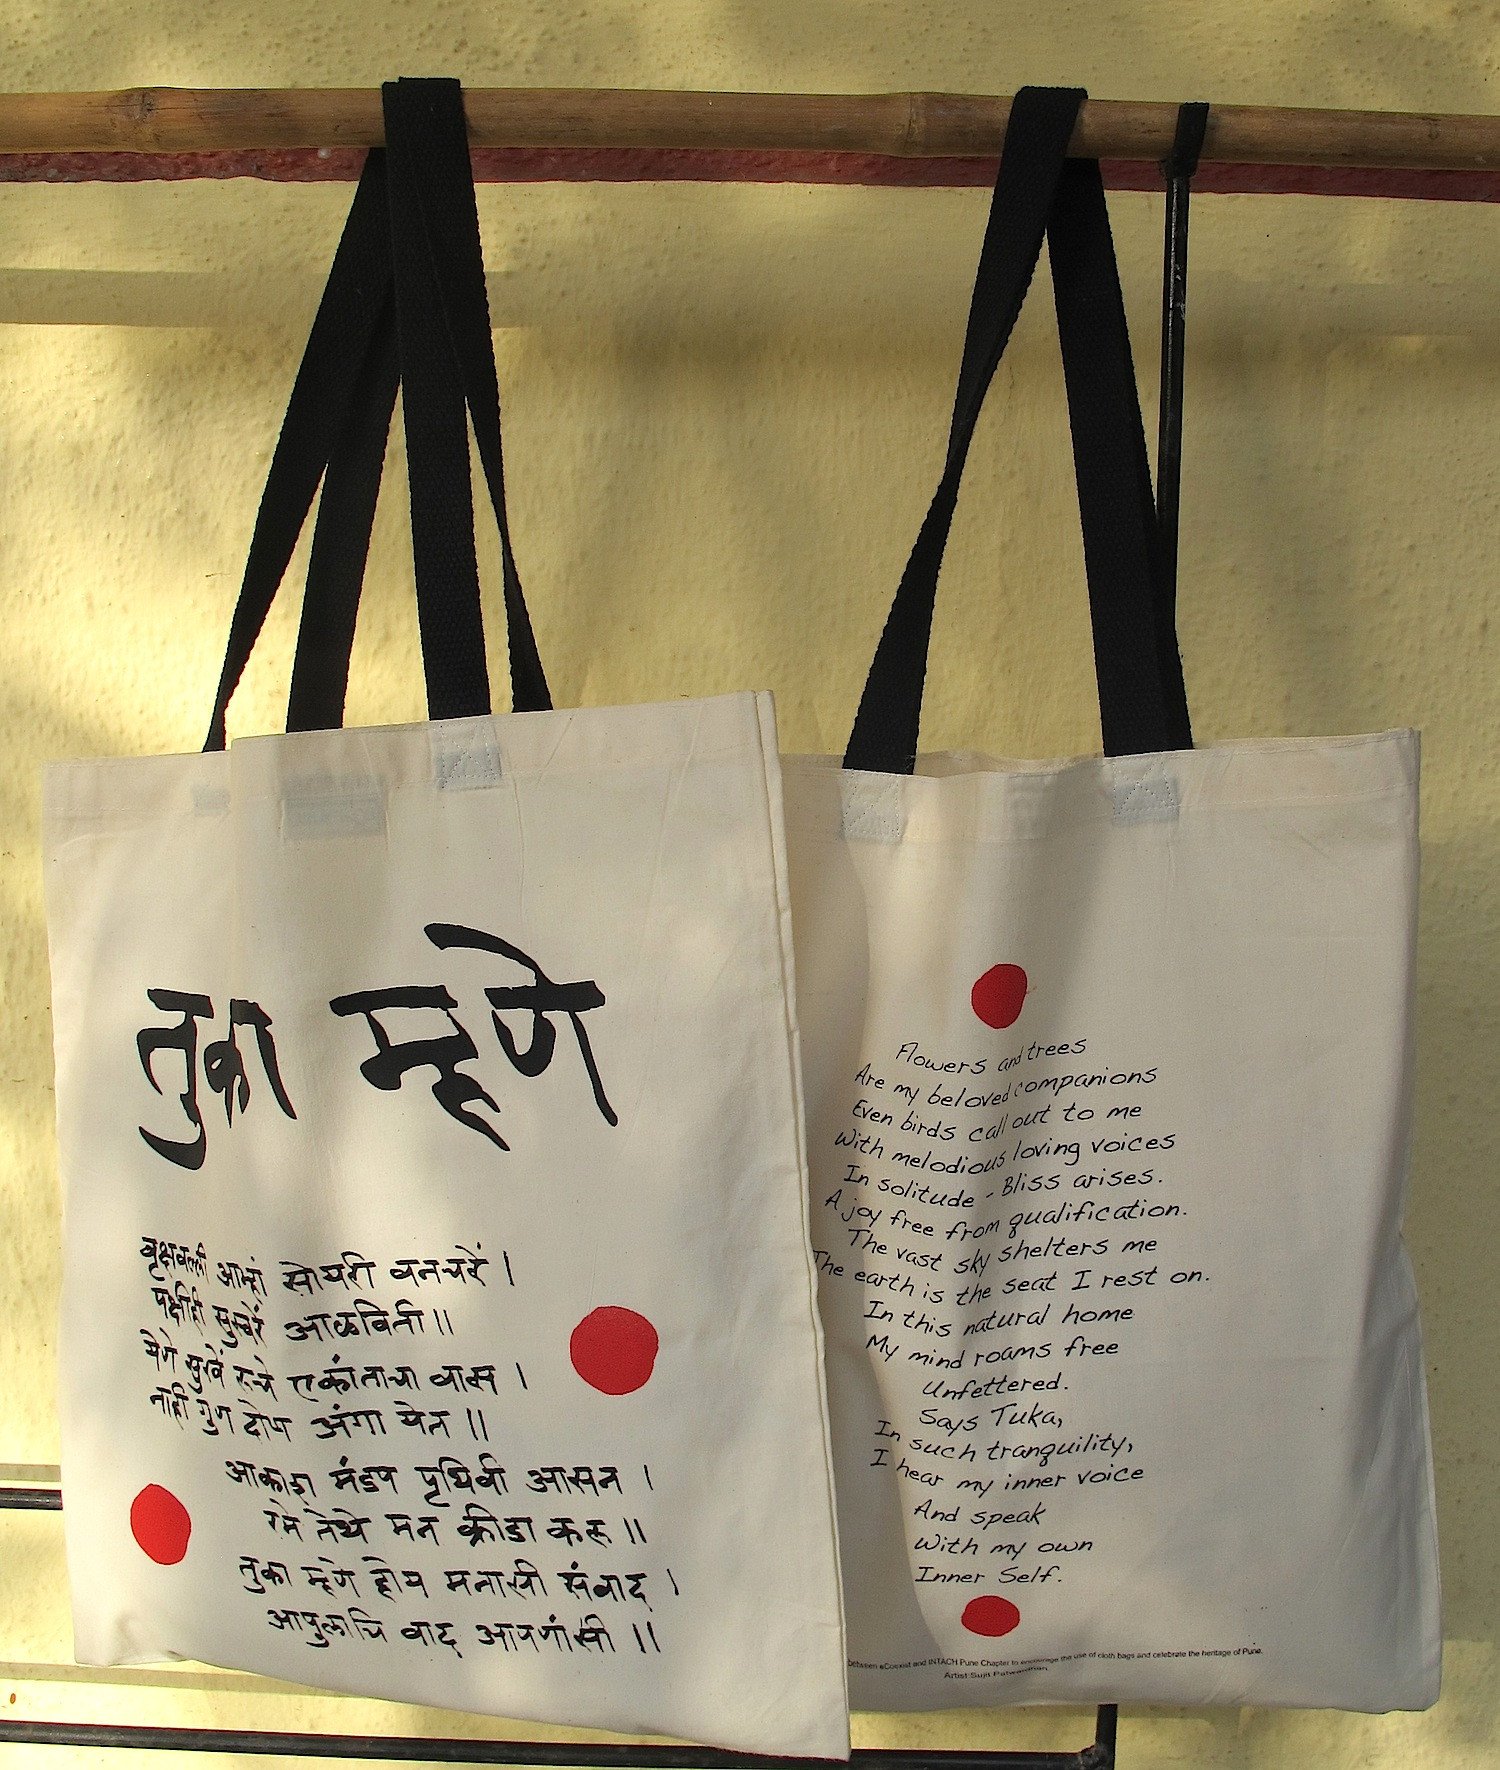 तुका म्हणे
वृक्षवल्ली आम्हां सोयरी वनचरें ।
पक्षीही सुस्वरें आळविती ॥
येणे सुखें रुचे एकांताचा वास ।
नाही गुण दोष अंगा येत ॥
आकाश मंडप पृथिवी आसन ।
रमे तेथे मन क्रीडा करू ॥
तुका म्हणे होय मनासी संवाद ।
आपुलाचि वाद आपणांसी ॥
Flowers and trees
Are my beloved companions
Even birds call out to me
With melodious loving voices
In solitude - Bliss arises.
A joy free from qualification.
The vast sky shelters me
The earth is the seat I rest on.
In this natural home
My mind roams free
Unfettered.
Says Tuka,
In such tranquility,
I hear my inner voice
And speak
With my own
Inner Self.
between eCoexist and INTACH Pune Chapter to encourage the use of cloth bags and celebrate the heritage of Pune.
Artist Sujit Patwardhan